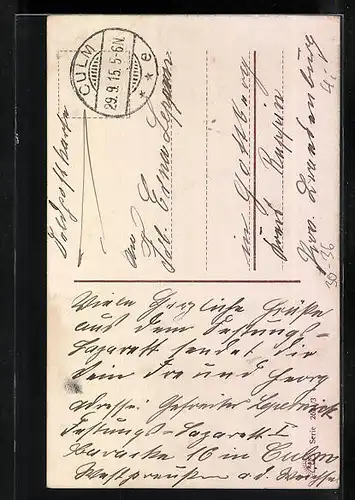 CULM
29.9.15.5-6N.
* * e
Feldpostkarte
an
Frl. Erna
in Gottberg
Kreis Ruppin
Prov. Brandenburg
30-36
Viele Herzliche Grüße
aus dem Festungs-
Lazarett sendet die
Dein Freund Georg
Adresse: Gefreiter
Festungs-Lazarett I
Baracke 16 in Culm
Westpreußen a.d. Weichsel
Serie